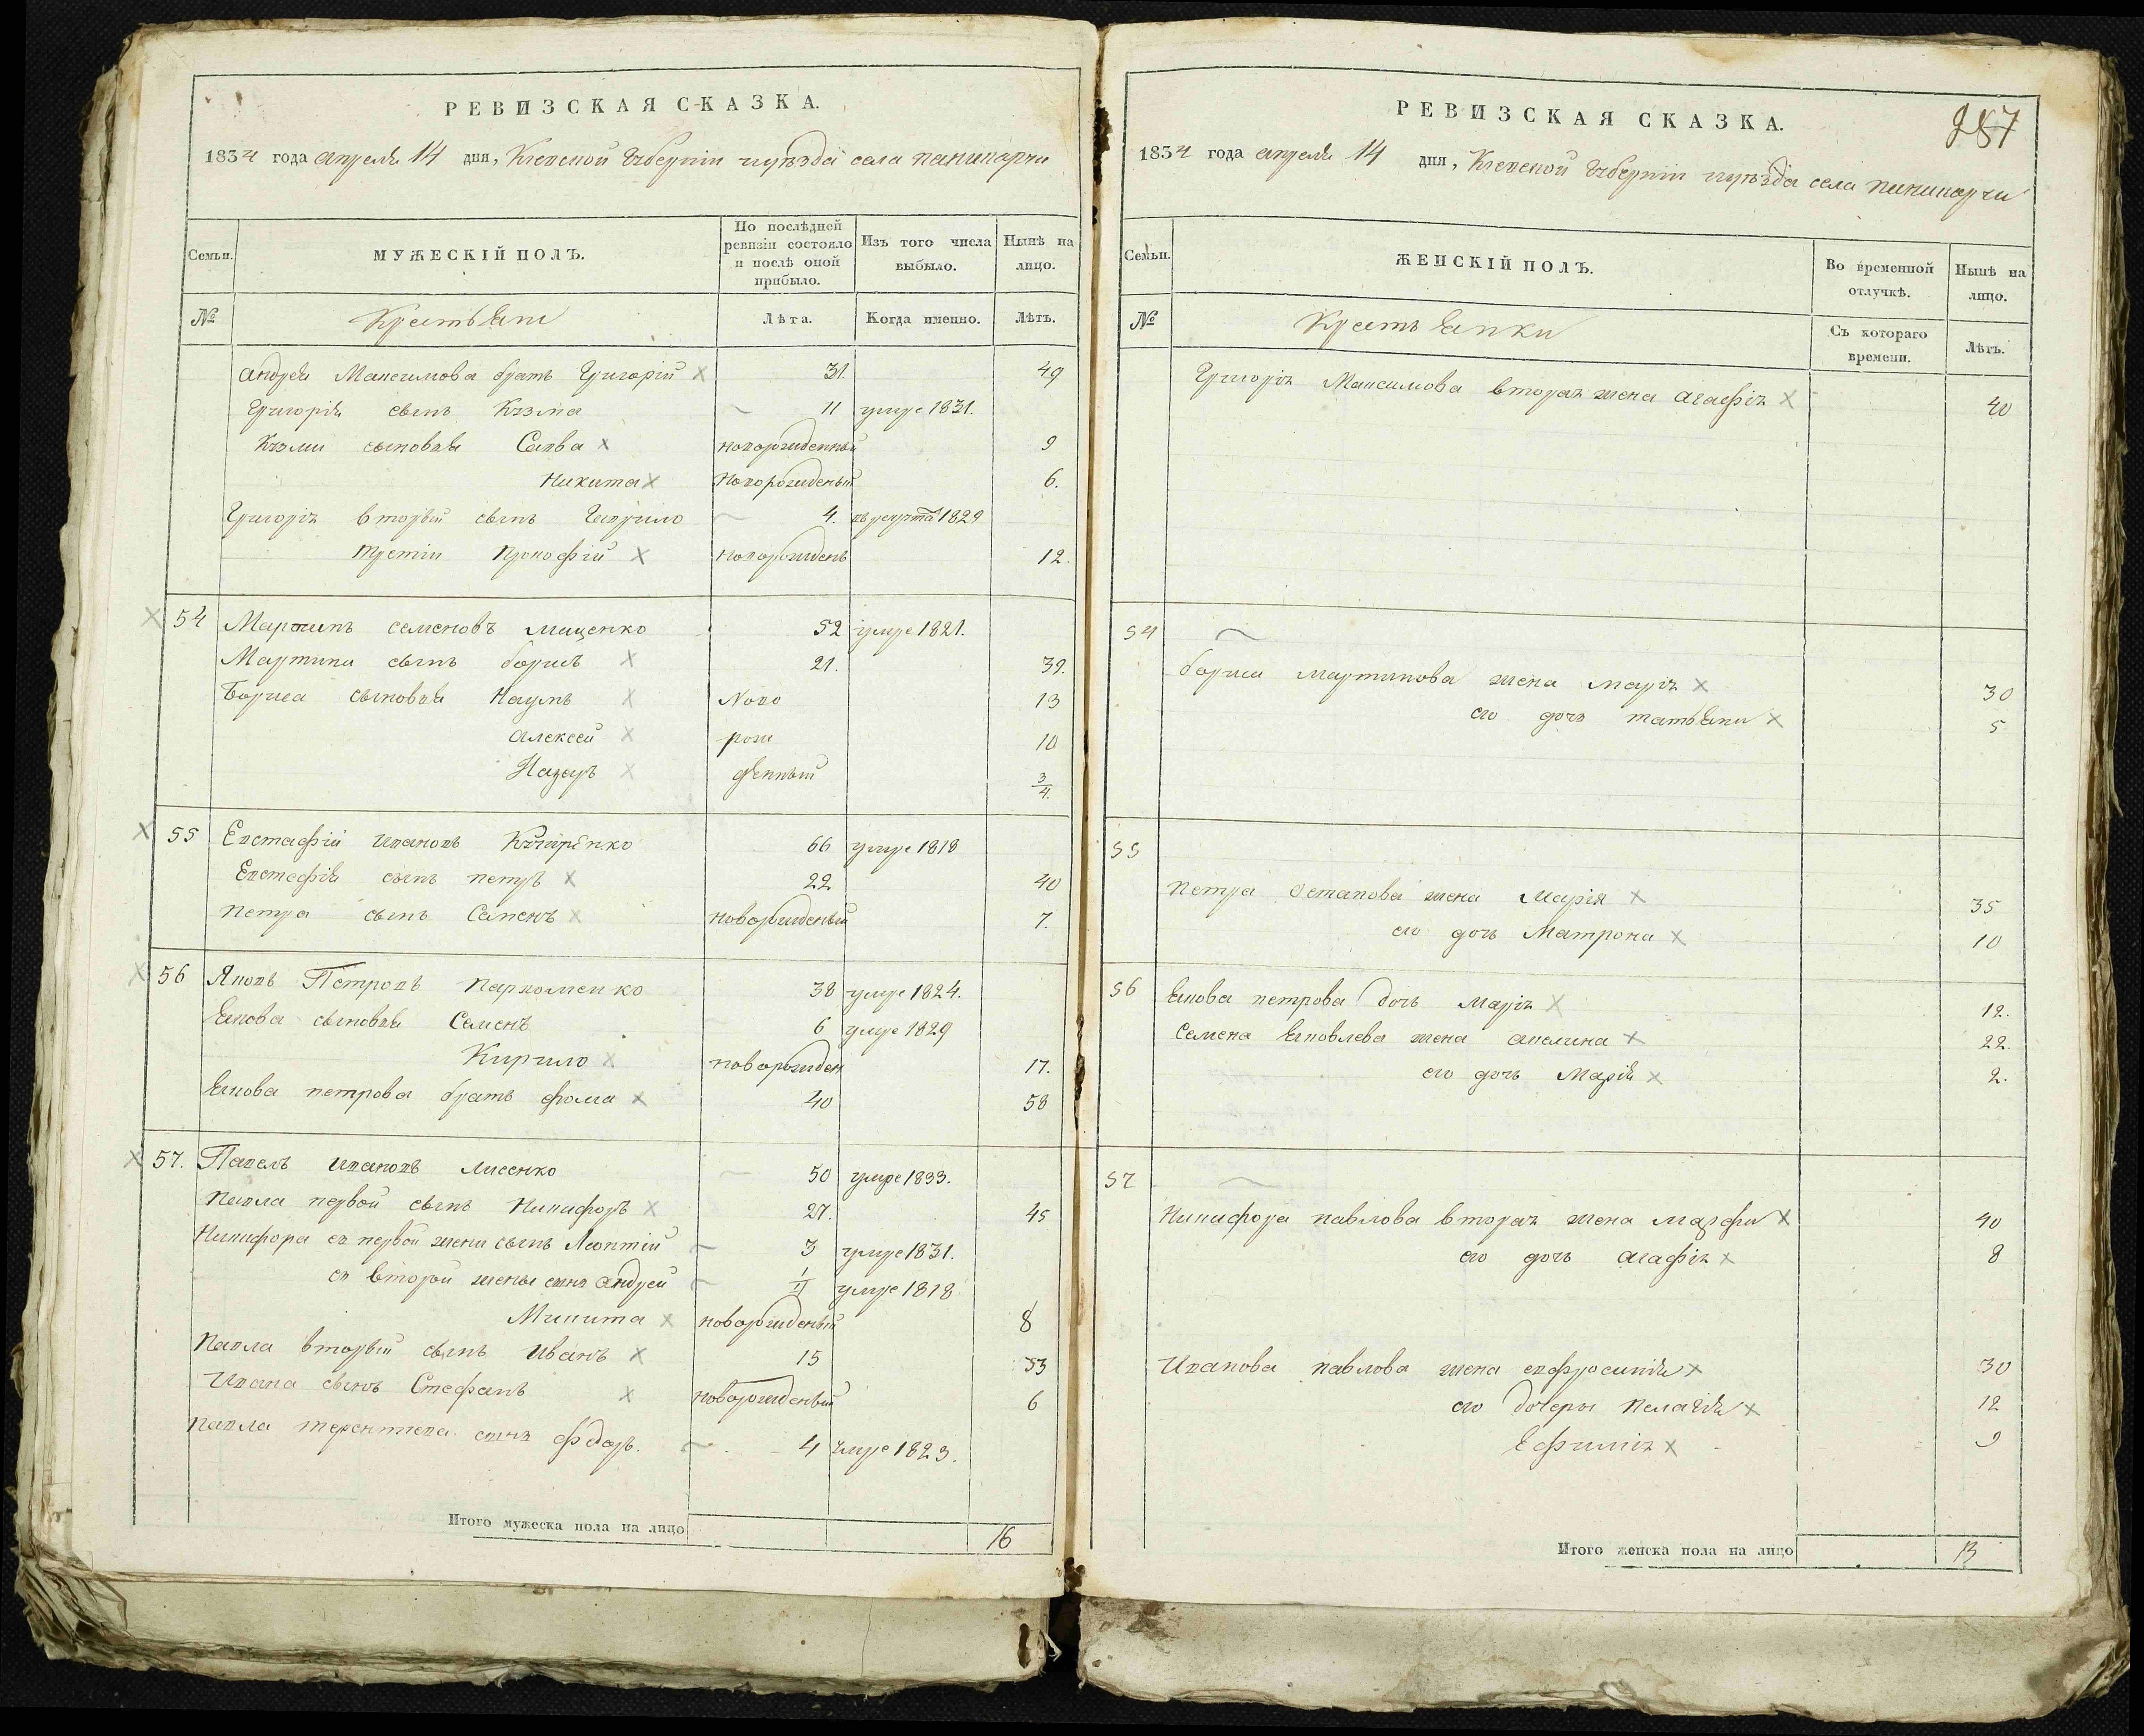 РЕВИЗСКАЯ СКАЗКА.
1834 года апреля 14 дня, Киевской Губернии и уѣзда села
Семьи.
МУЖЕСКІЙ ПОЛЪ.
По послѣдней ревизіи состояло и послѣ оной прибыло.
Изъ того числа выбыло.
Нынѣ на лицо.
№
Крестьяне
Лѣта.
Когда именно.
Лѣтъ.
Андрея Максимова братъ Григорій 31. 49
Григорія сынъ Кузма 11 умре 1831.
Кузми сыновья Савва новорожденный 9
Никита новорожденый 6.
Григорія вторый сынъ Гаврило 4. в рекруты 1829
третіи Прокофій новорожденъ 12.
54 Мартинъ семеновъ мащенко 52 умре 1821.
Мартина сынъ борисъ 21. 39.
Бориса сыновья Наумъ Ново 13
алексей рож 10
Назаръ денный 3/4.
55 Евстафій Ивановъ 66 умре 1818
Евстафія сынъ петръ 22 40
Петра сынъ Семенъ новорожденый 7.
56 Яковъ Петровъ Пархоменко 38 умре 1824.
Якова сыновья Семенъ 6 умре 1829
Кирило новорожден 17.
Якова петрова братъ фома 40 58
57. Павелъ Ивановъ лисенко 50 умре 1833.
Павла первой сынъ Никифоръ 27. 45
Никифора съ первой жени сынъ Леонтій 3 умре 1831.
съ второй жены сынъ андрей умре 1818
Микита новорожденый 8
Павла вторый сынъ Иванъ 15 33
Ивана сынъ Стефанъ новорожденый 6
Павла терентиева сынъ федоръ. 4 умре 1823.
Итого мужеска пола на лицо 16
287
РЕВИЗСКАЯ СКАЗКА.
1834 года апреля 14 дня, Киевской Губернии и уѣзда села
Семьи.
ЖЕНСКІЙ ПОЛЪ.
Во временной отлучкѣ.
Нынѣ на лицо.
№
Крестьянки
Съ котораго времени.
Лѣтъ.
Григорія Максимова вторая жена агафія 40
54
бориса мартинова жена марія 30
его дочь татьяна 5
55
Петра Остапова жена Марія 35
его дочь Матрона 10
56 Якова петрова дочь Марія 12.
Семена Яковлева жена акилина 22.
его дочь Марія 2.
57
Никифора павлова вторая жена марфа 40
его дочь агафія 8
Иванова павлова жена евфросинія 30
его дочеры Пелагія 12
Ефимія 9
Итого женска пола на лицо 13